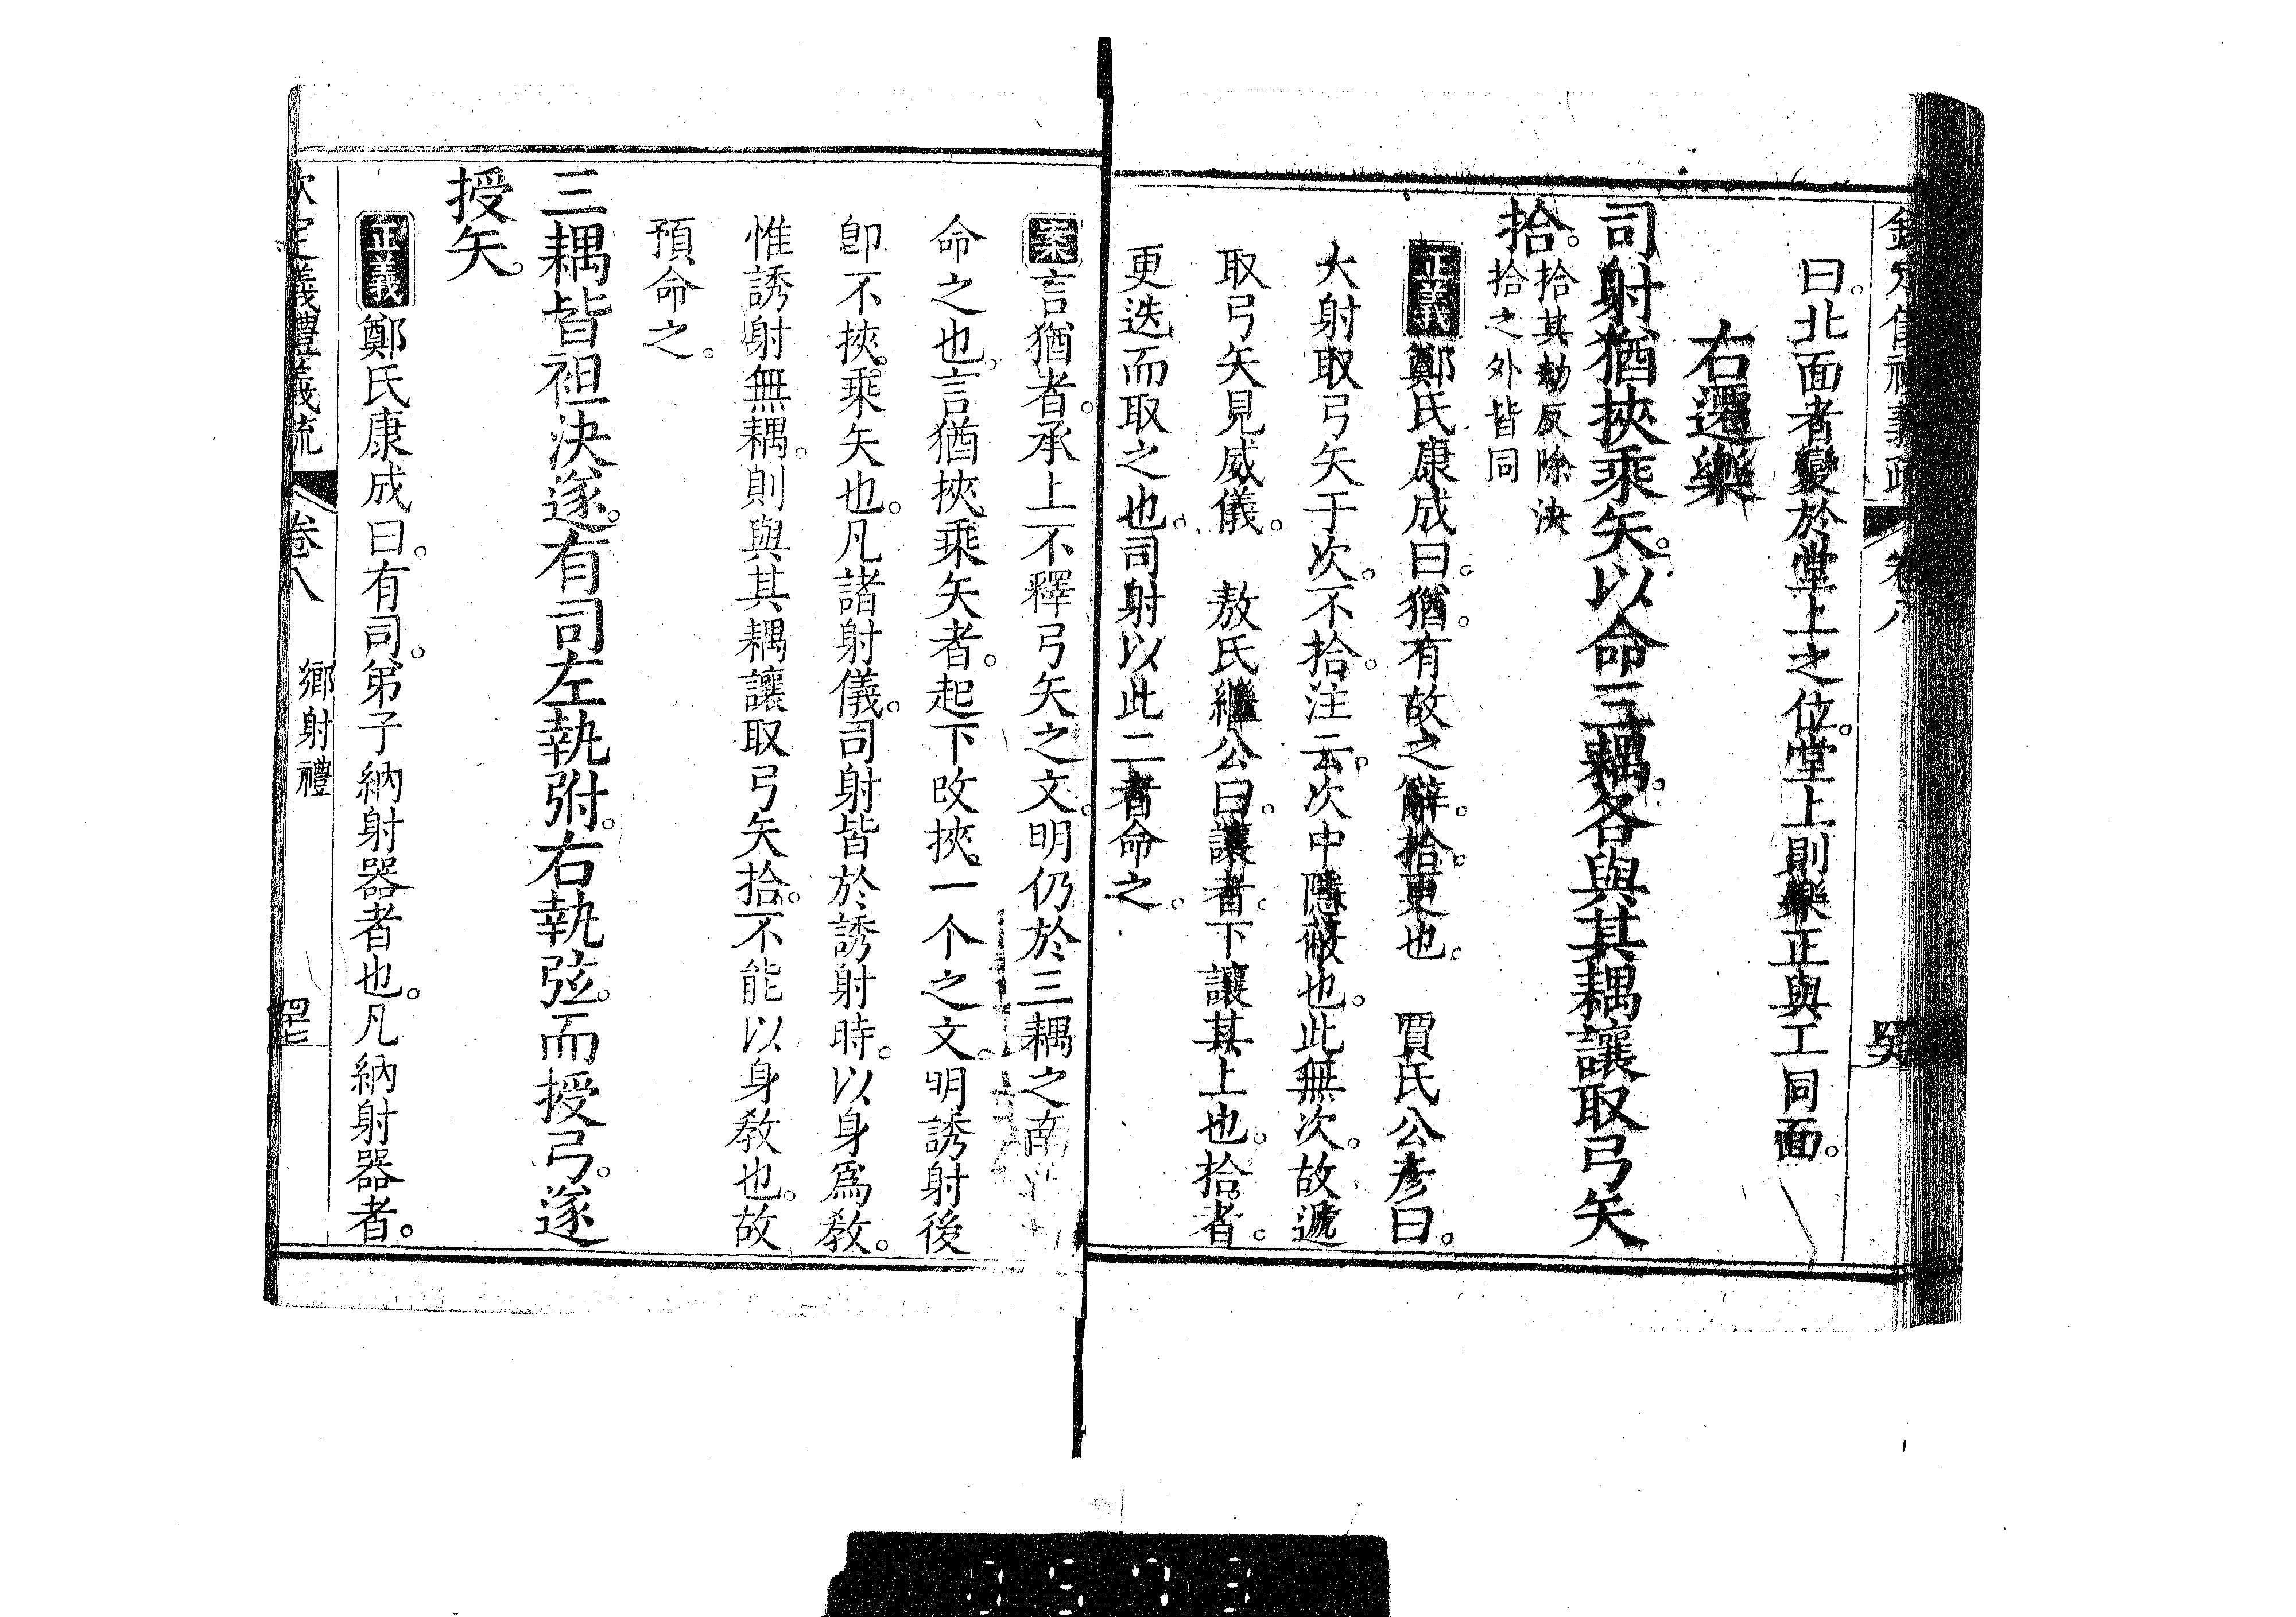 欽定儀禮義疏 卷八
曰。北面者變於堂上之位。堂上則樂正與工同面。
右遷樂
司射猶挾乘矢。以命三耦。各與其耦讓取弓矢
拾。拾其劫反除決
拾之外皆同
正義鄭氏康成曰。猶。有故之辭。拾。更也。 賈氏公彥曰。
大射取弓矢于次。不拾。注云。次中隱蔽也。此無次。故遞
取弓矢見威儀。 敖氏繼公曰。讓者。下讓其上也。拾者。
更迭而取之也。司射以此二者命之。
案言猶者。承上不釋弓矢之文。明仍於三耦之南
命之也。言猶挾乘矢者。起下改挾一个之文。明誘射後
卽不挾乘矢也。凡諸射儀。司射皆於誘射時。以身爲敎。
惟誘射無耦。則與其耦讓取弓矢拾。不能以身敎也。故
預命之。
三耦皆袒決遂。有司左執弣。右執弦。而授弓。遂
授矢。
正義鄭氏康成曰。有司。弟子納射器者也。凡納射器者。
欽定儀禮義疏 卷八 鄉射禮